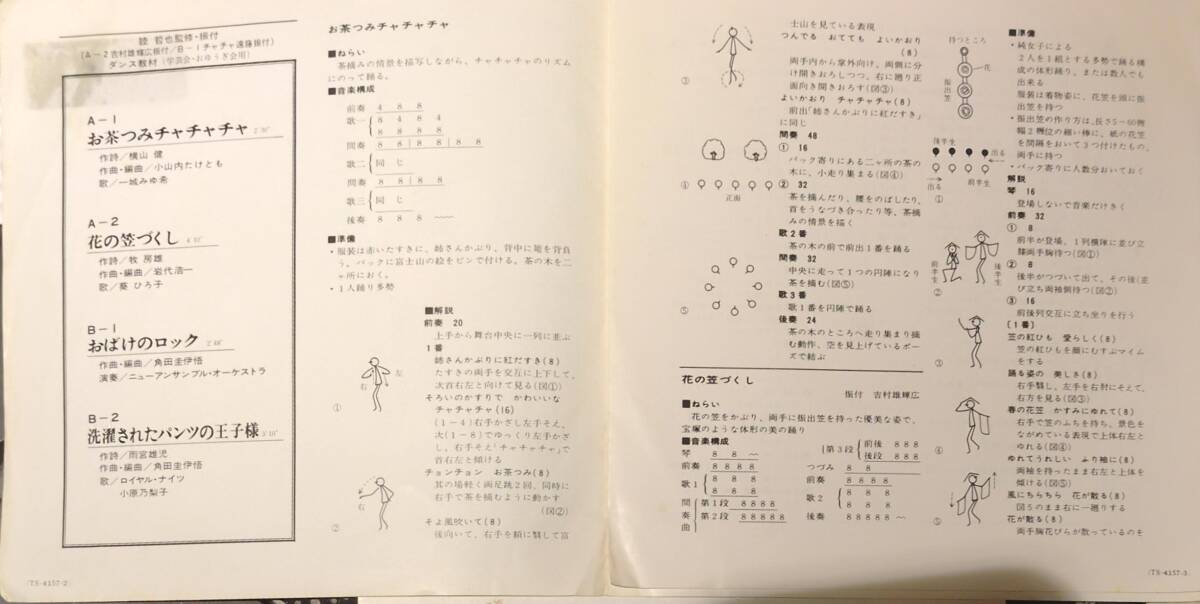 睦 哲也監修・振付
(A－2吉村雄輝広振付/B－1チャチャ遠藤振付)
ダンス教材(学芸会・おゆうぎ会用)
A－1
お茶つみチャチャチャ
作詩/横山 健
作曲・編曲/小山内たけとも
歌/一城みゆ希
A－2
花の笠づくし
作詩/牧 房雄
作曲・編曲/岩代浩一
歌/葵 ひろ子
B－1
おばけのロック 2′48″
作曲・編曲/角田圭伊悟
演奏/ニューアンサンブル・オーケストラ
B－2
洗濯されたパンツの王子様 3′10″
作詩/雨宮雄児
作曲・編曲/角田圭伊悟
歌/ロイヤル・ナイツ
小原乃梨子
(TS-4157-2)
お茶つみチャチャチャ
■ねらい
茶摘みの情景を描写しながら、チャチャチャのリズム
にのって踊る。
■音楽構成
前奏 4 8 8
歌一 8 4 8 4
8 8 8 8
8 8 8
間奏 8 8 8 8 8 8
歌二 同じ
間奏 8 8 8 8
歌三 同じ
後奏 8 8 8
■準備
・服装は赤いたすきに、姉さんかぶり、背中に籠を背負
う。バックに富士山の絵をピンで付ける。茶の木を二ヶ
所におく。
・1人踊り多勢
■解説
前奏 20
上手から舞台中央に一列に並ぶ
1番
姉さんかぶりに紅だすき(8)
たすきの両手を交互に上下して、
次首右左と向けて見る(図①)
そろいのかすりで かわいいな
チャチャチャ(16)
(1－4)右手かざし左手そえ、
次(1－8)でゆっくり左手かざ
し、右手そえ「チャチャチャ」で
首右左と傾ける
チョンチョン お茶つみ(8)
其の場軽く両足跳2回、同時に
右手で茶を摘むように動かす
(図②)
そよ風吹いて(8)
後向いて、右手を額に翳して富
右
左
①
右
②
士山を見ている表現
つんでる おてても よいかおり
(8)
両手内から掌外向け、両側に分
け開きおろしつつ、右に廻り正
面向き開きおろす(図③)
よいかおり チャチャチャ(8)
前出「姉さんかぶりに紅だすき」
に同じ
間奏 48
① 16
バック寄りにある二ヶ所の茶の
木に、小走り集まる(図④)
② 32
茶を摘んだり、腰をのばしたり、
首をうなづき合ったり等、茶摘
みの情景を描く
歌2番
茶の木の前で前出1番を踊る
間奏 32
中央に走って1つの円陣になり
茶を摘む(図⑤)
歌3番
歌1番を円陣で踊る
後奏 24
茶の木のところへ走り集まり摘
む動作、空を見上げているポー
ズで結ぶ
③
④
正面
⑤
花の笠づくし
振付 吉村雄輝広
■ねらい
花の笠をかぶり、両手に振出笠を持った優美な姿で、
宝塚のような体形の美の踊り
■音楽構成
琴 8 8
前奏 8 8 8 8
歌1 8 8 8
8 8 8
8 8 8
間奏曲
第1段 8 8 8 8
第2段 8 8 8 8 8
第3段 前後 8 8 8
後段 8 8 8
つづみ 8 8
前奏 8 8 8 8
歌2 8 8 8
8 8 8
8 8 8
後奏 8 8 8 8 8
待つところ
花
振出笠
後半生
出る
出る
前半生
①
前半生
後半生
②
③
④
⑤
■準備
・純女子による
2人を1組とする多勢で踊る構
成の体形踊り、または数人でも
出来る
服装は着物姿に、花笠を頭に振
出笠を持つ
・振出笠の作り方は、長さ5～60糎
幅2糎位の細い棒に、紙の花笠
を間隔をおいて3つ付けたもの、
両手に持つ
・バック寄りに人数分おいておく
解説
琴 16
登場しないで音楽だけきく
前奏 32
① 8
前半が登場、1列横隊に並び立
膝両手胸前待つ(図①)
② 8
後半がつづいて出て、その後(並
び立ち両袖側待つ(図②)
③ 16
前後列交互に立ち坐りを行う
〔1番〕
笠の紅ひも 愛らしく(8)
笠の紅ひもを顔にむすぶマイム
をする
踊る姿の 美しさ(8)
右手翳し、左手を右肘にそえて、
右方を見る(図③)
春の花笠 かすみにゆれて(8)
右手で笠のふちを持ち、景色を
ながめている表現で上体右左と
ゆれる(図④)
ゆれてうれしい ふり袖に(8)
両袖を持ったまま右左と上体を
傾ける(図⑤)
風にちらちら 花が散る(8)
図5のまま右に一廻りする
花が散る(8)
両手胸花びらが散っているのそ
(TS-4157-3)